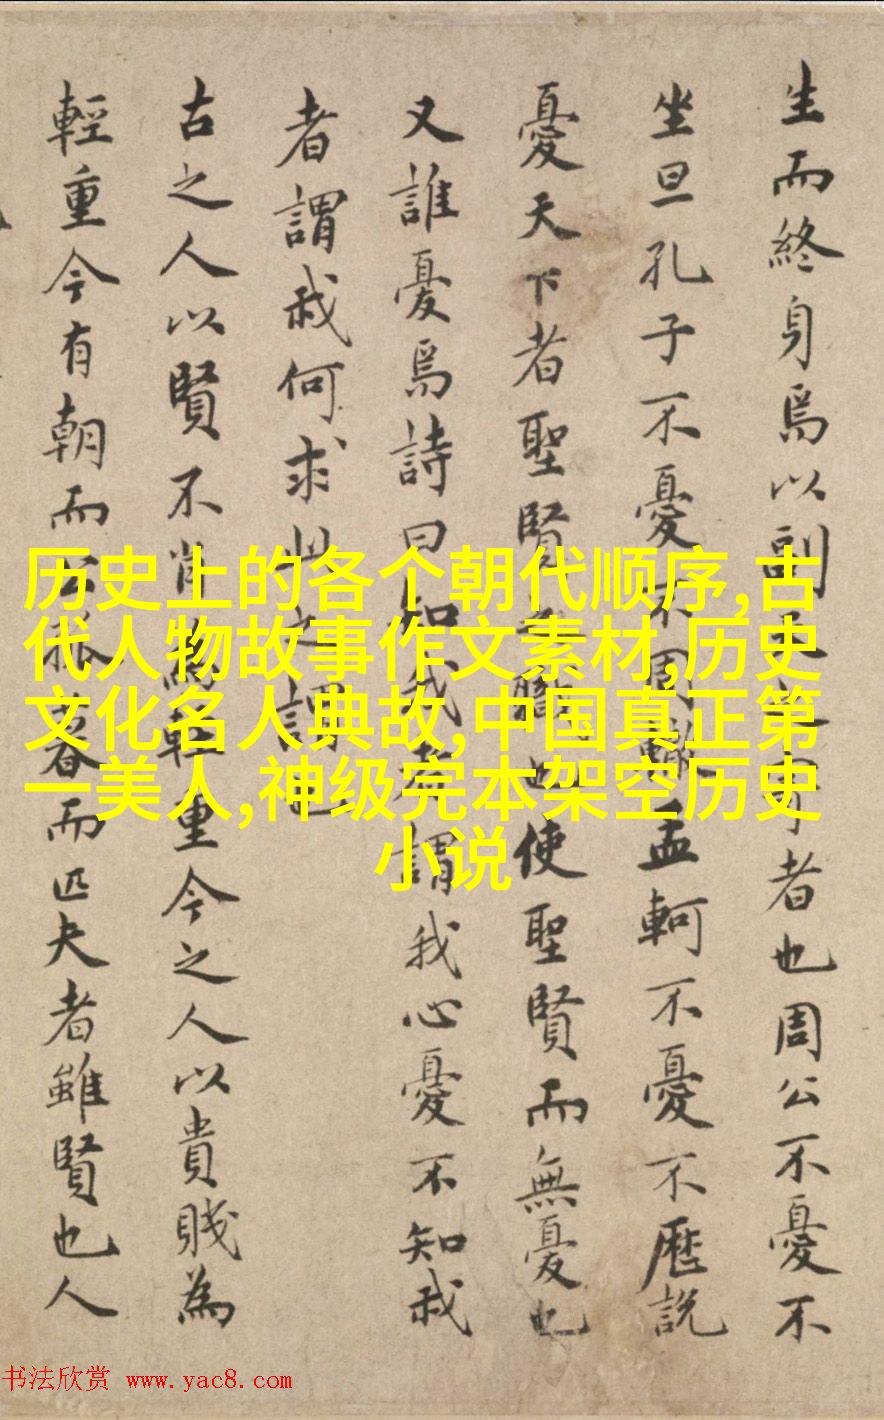 生而終身焉以副天者也周公不憂不
坐旦孔子不憂不周轍孟軻不憂不歷説
憂天下者聖賢職也使聖賢而無憂也
又誰憂焉詩曰知我者謂我心憂不知我
者謂我何求此之謂也
古之人以賢不肖為輕重今之人以貴賤為
輕重今有朝而公孤暮而匹夫者雖賢也人
历史上的各个朝代顺序,古
代人物故事作文素材,历史
文化名人典故,中国真正第
一美人,神级完本架空历史
小说
书法欣赏 www.yac8.com